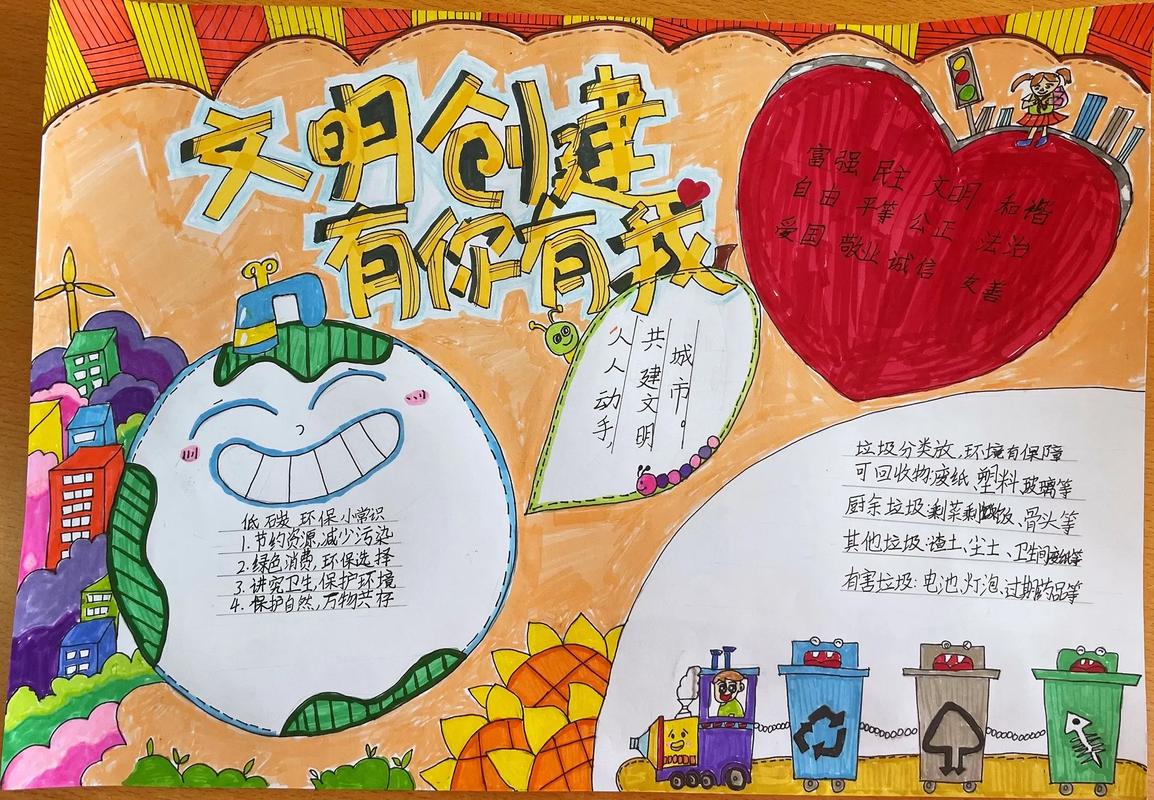 文明创建
有你有我
富强 民主 文明 和谐
自由 平等 公正 法治
爱国 敬业 诚信 友善
人人动手，
共建文明
城市。
低碳环保小常识
1.节约资源,减少污染
2.绿色消费,环保选择
3.讲究卫生,保护环境
4.保护自然,万物共存
垃圾分类放,环境有保障
可回收物:废纸、塑料、玻璃等
厨余垃圾:剩菜剩饭、骨头等
其他垃圾:渣土、尘土、卫生间废纸等
有害垃圾:电池、灯泡、过期药品等